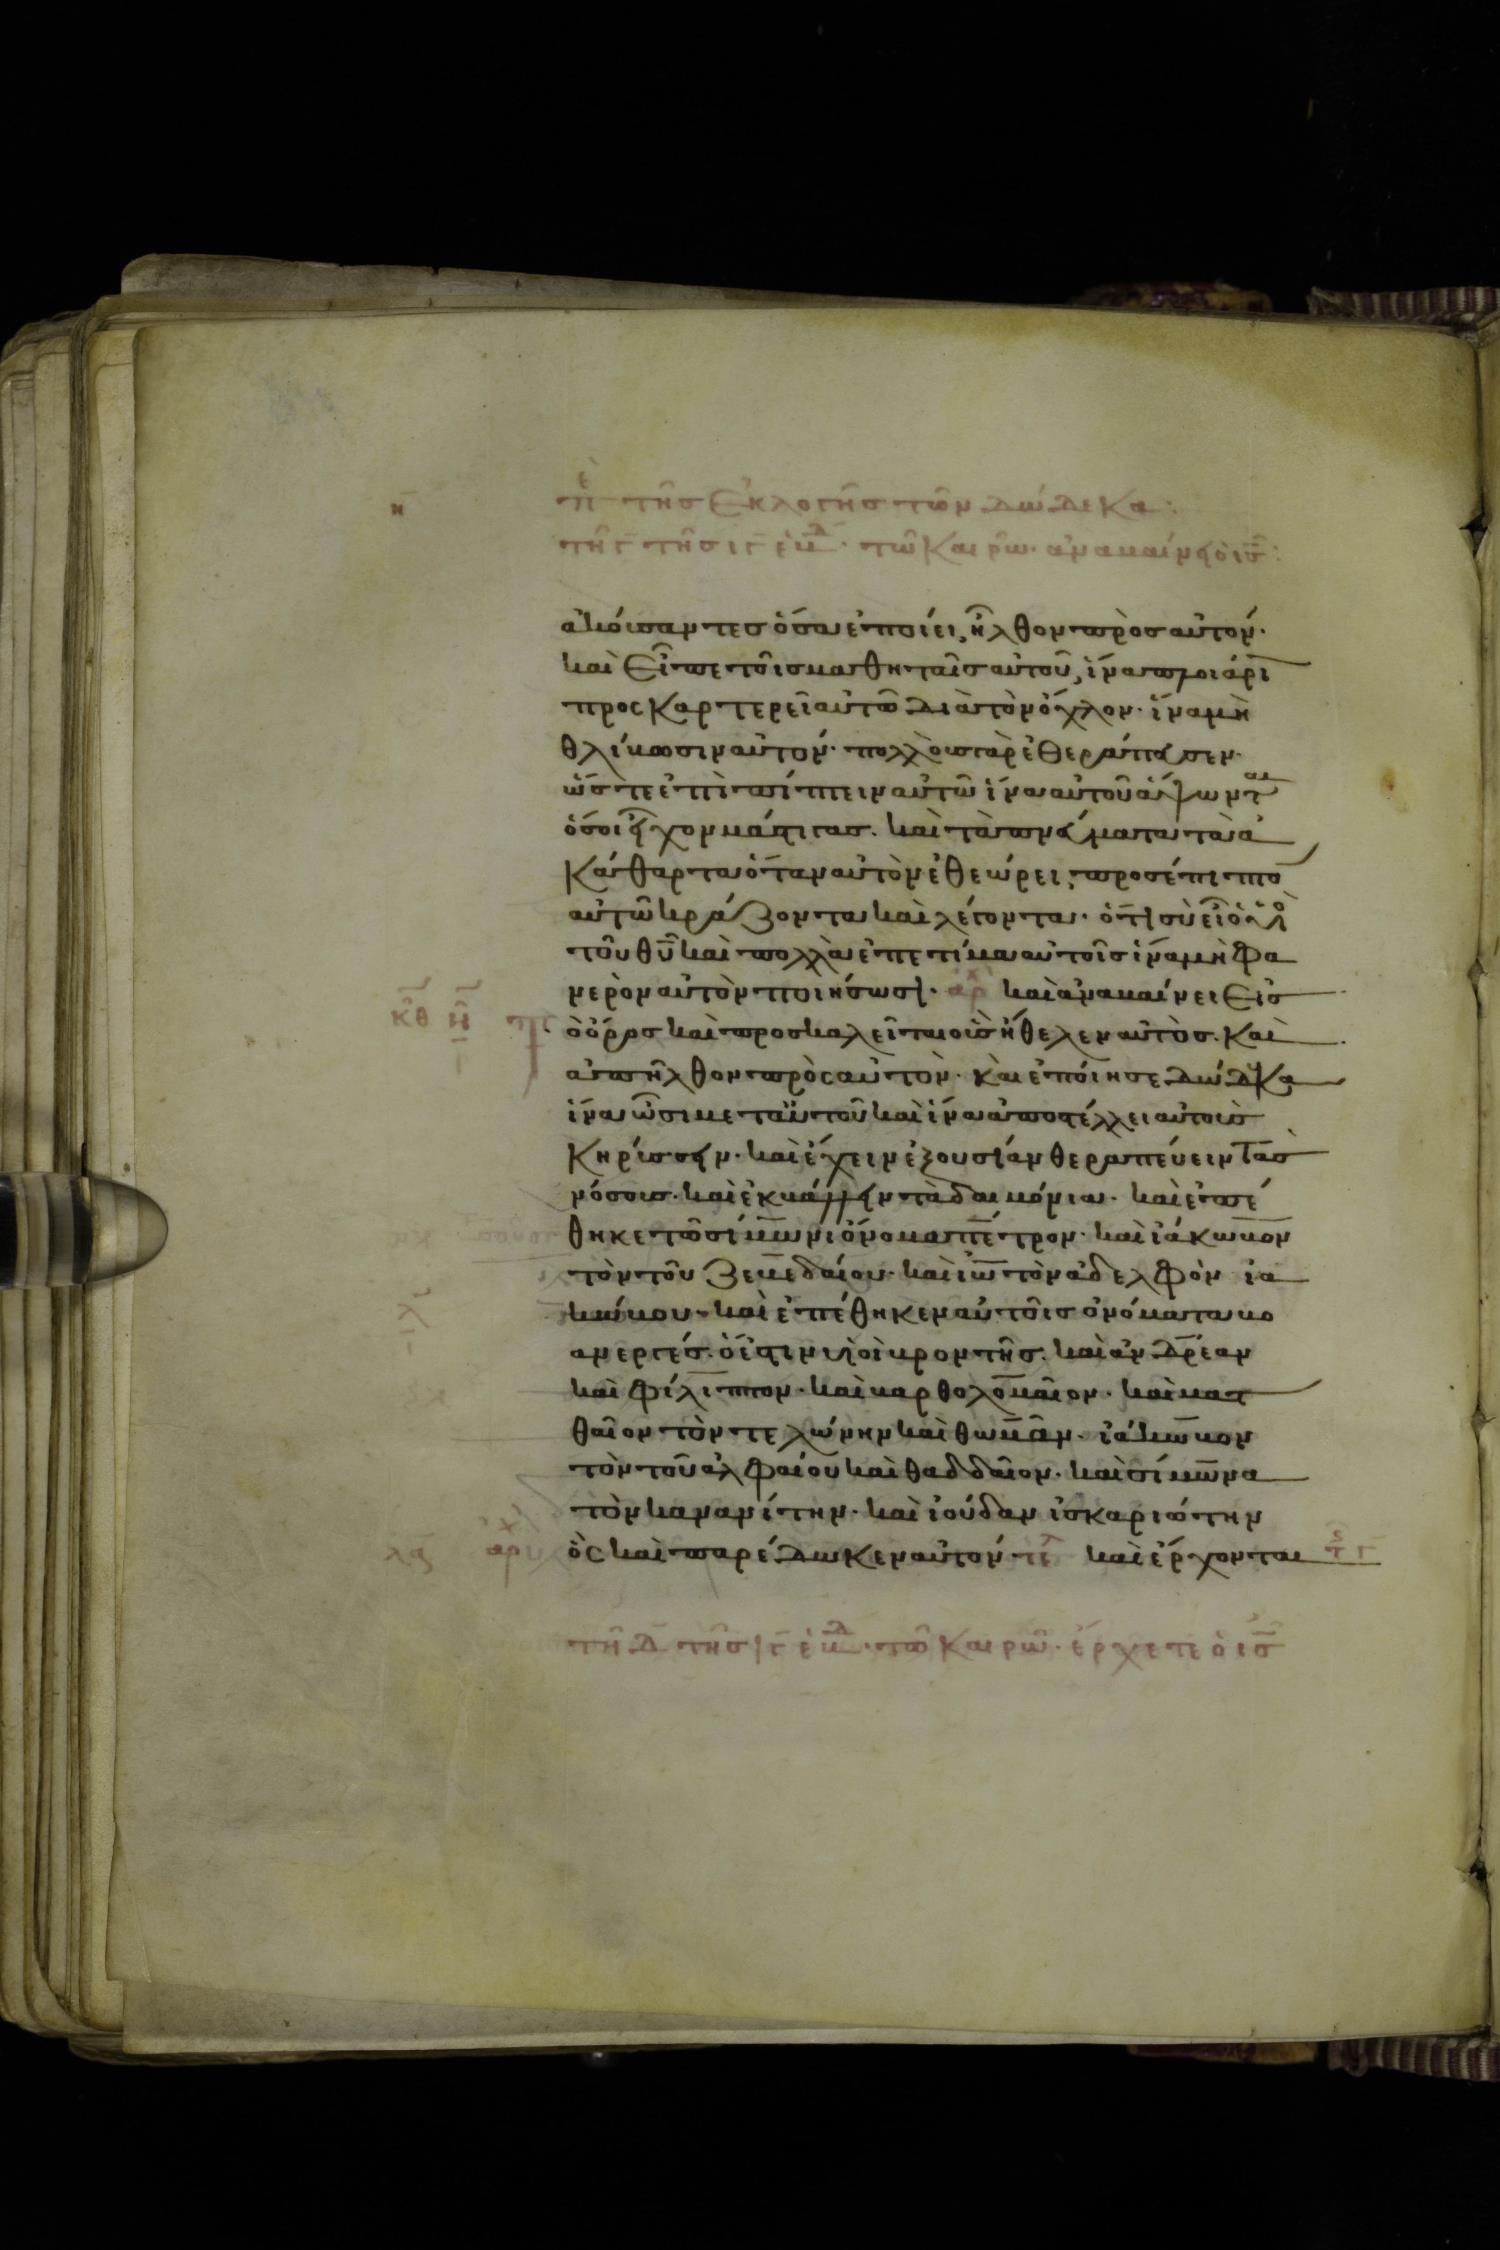 η περὶ τῆς ἐκλογῆς τῶν δώδεκα:
τῆ γ τῆς ιγ ἑβδ. τῶ καιρῶ. ἀναβαίνει ὁ ις:
ἀκούσαντες ὅσα ἐποίει, ἦλθον πρὸς αὐτόν.
καὶ εἶπε τοῖς μαθηταῖς αὐτοῦ, ἵνα πλοιάρι
προσκαρτερεῖ αὐτῶ διὰ τὸν ὄχλον. ἵνα μὴ
θλίβωσιν αὐτόν. πολλοὺς γὰρ ἐθεράπευσεν.
ὥστε ἐπιπίπτειν αὐτῶ ἵνα αὐτοῦ ἅψωνται
ὅσοι εἶχον μάστιγας. καὶ τὰ πνεύματα τὰ ἀ
κάθαρτα ὅταν αὐτὸν ἐθεώρει, προσέπιπτο
αὐτῶ κράζοντα καὶ λέγοντα. ὅτι σὺ εἶ ὁ υἱὸς
τοῦ θυ καὶ πολλὰ ἐπετίμα αὐτοῖς ἵνα μὴ φα
νερὸν αὐτὸν ποιήσωσι. ἀρχ καὶ ἀναβαίνει εἰς
κθ η τὸ ὄρος καὶ προσκαλεῖται οὓς ἤθελεν αὐτὸς. καὶ
ἀπῆλθον πρὸς αὐτὸν. καὶ ἐποίησε δώδεκα
ἵνα ὦσι μετ αὐτοῦ καὶ ἵνα ἀποστέλλει αὐτοὺς
κηρύσσειν. καὶ ἔχειν ἐξουσίαν θεραπεύειν τὰς
νόσους. καὶ ἐκβάλλειν τὰ δαιμόνια. καὶ ἐπέ
θηκε τῶ σίμωνι ὄνομα πέτρον. καὶ ἰάκωβον
τὸν τοῦ ζεβεδαίου. καὶ ἰω τὸν ἀδελφὸν ἰα
κώβου. καὶ ἐπέθηκεν αὐτοῖς ὀνόματα βο
ανεργές. ὅ ἐστιν υἱοὶ βροντῆς. καὶ ἀνδρέαν
καὶ φίλιππον. καὶ βαρθολομαῖον. καὶ ματ
θαῖον τὸν τελώνην καὶ θωμᾶν. ἰάκωβον
τὸν τοῦ ἀλφαίου καὶ θαδδαῖον. καὶ σίμωνα
τὸν κανανίτην. καὶ ἰούδαν ἰσκαριώτην
ὃς καὶ παρέδωκεν αὐτόν τελ καὶ ἔρχονται
τῆ δ τῆς ιγ ἑβδ. τῶ καιρῶ. ἔρχετε ὁ ις